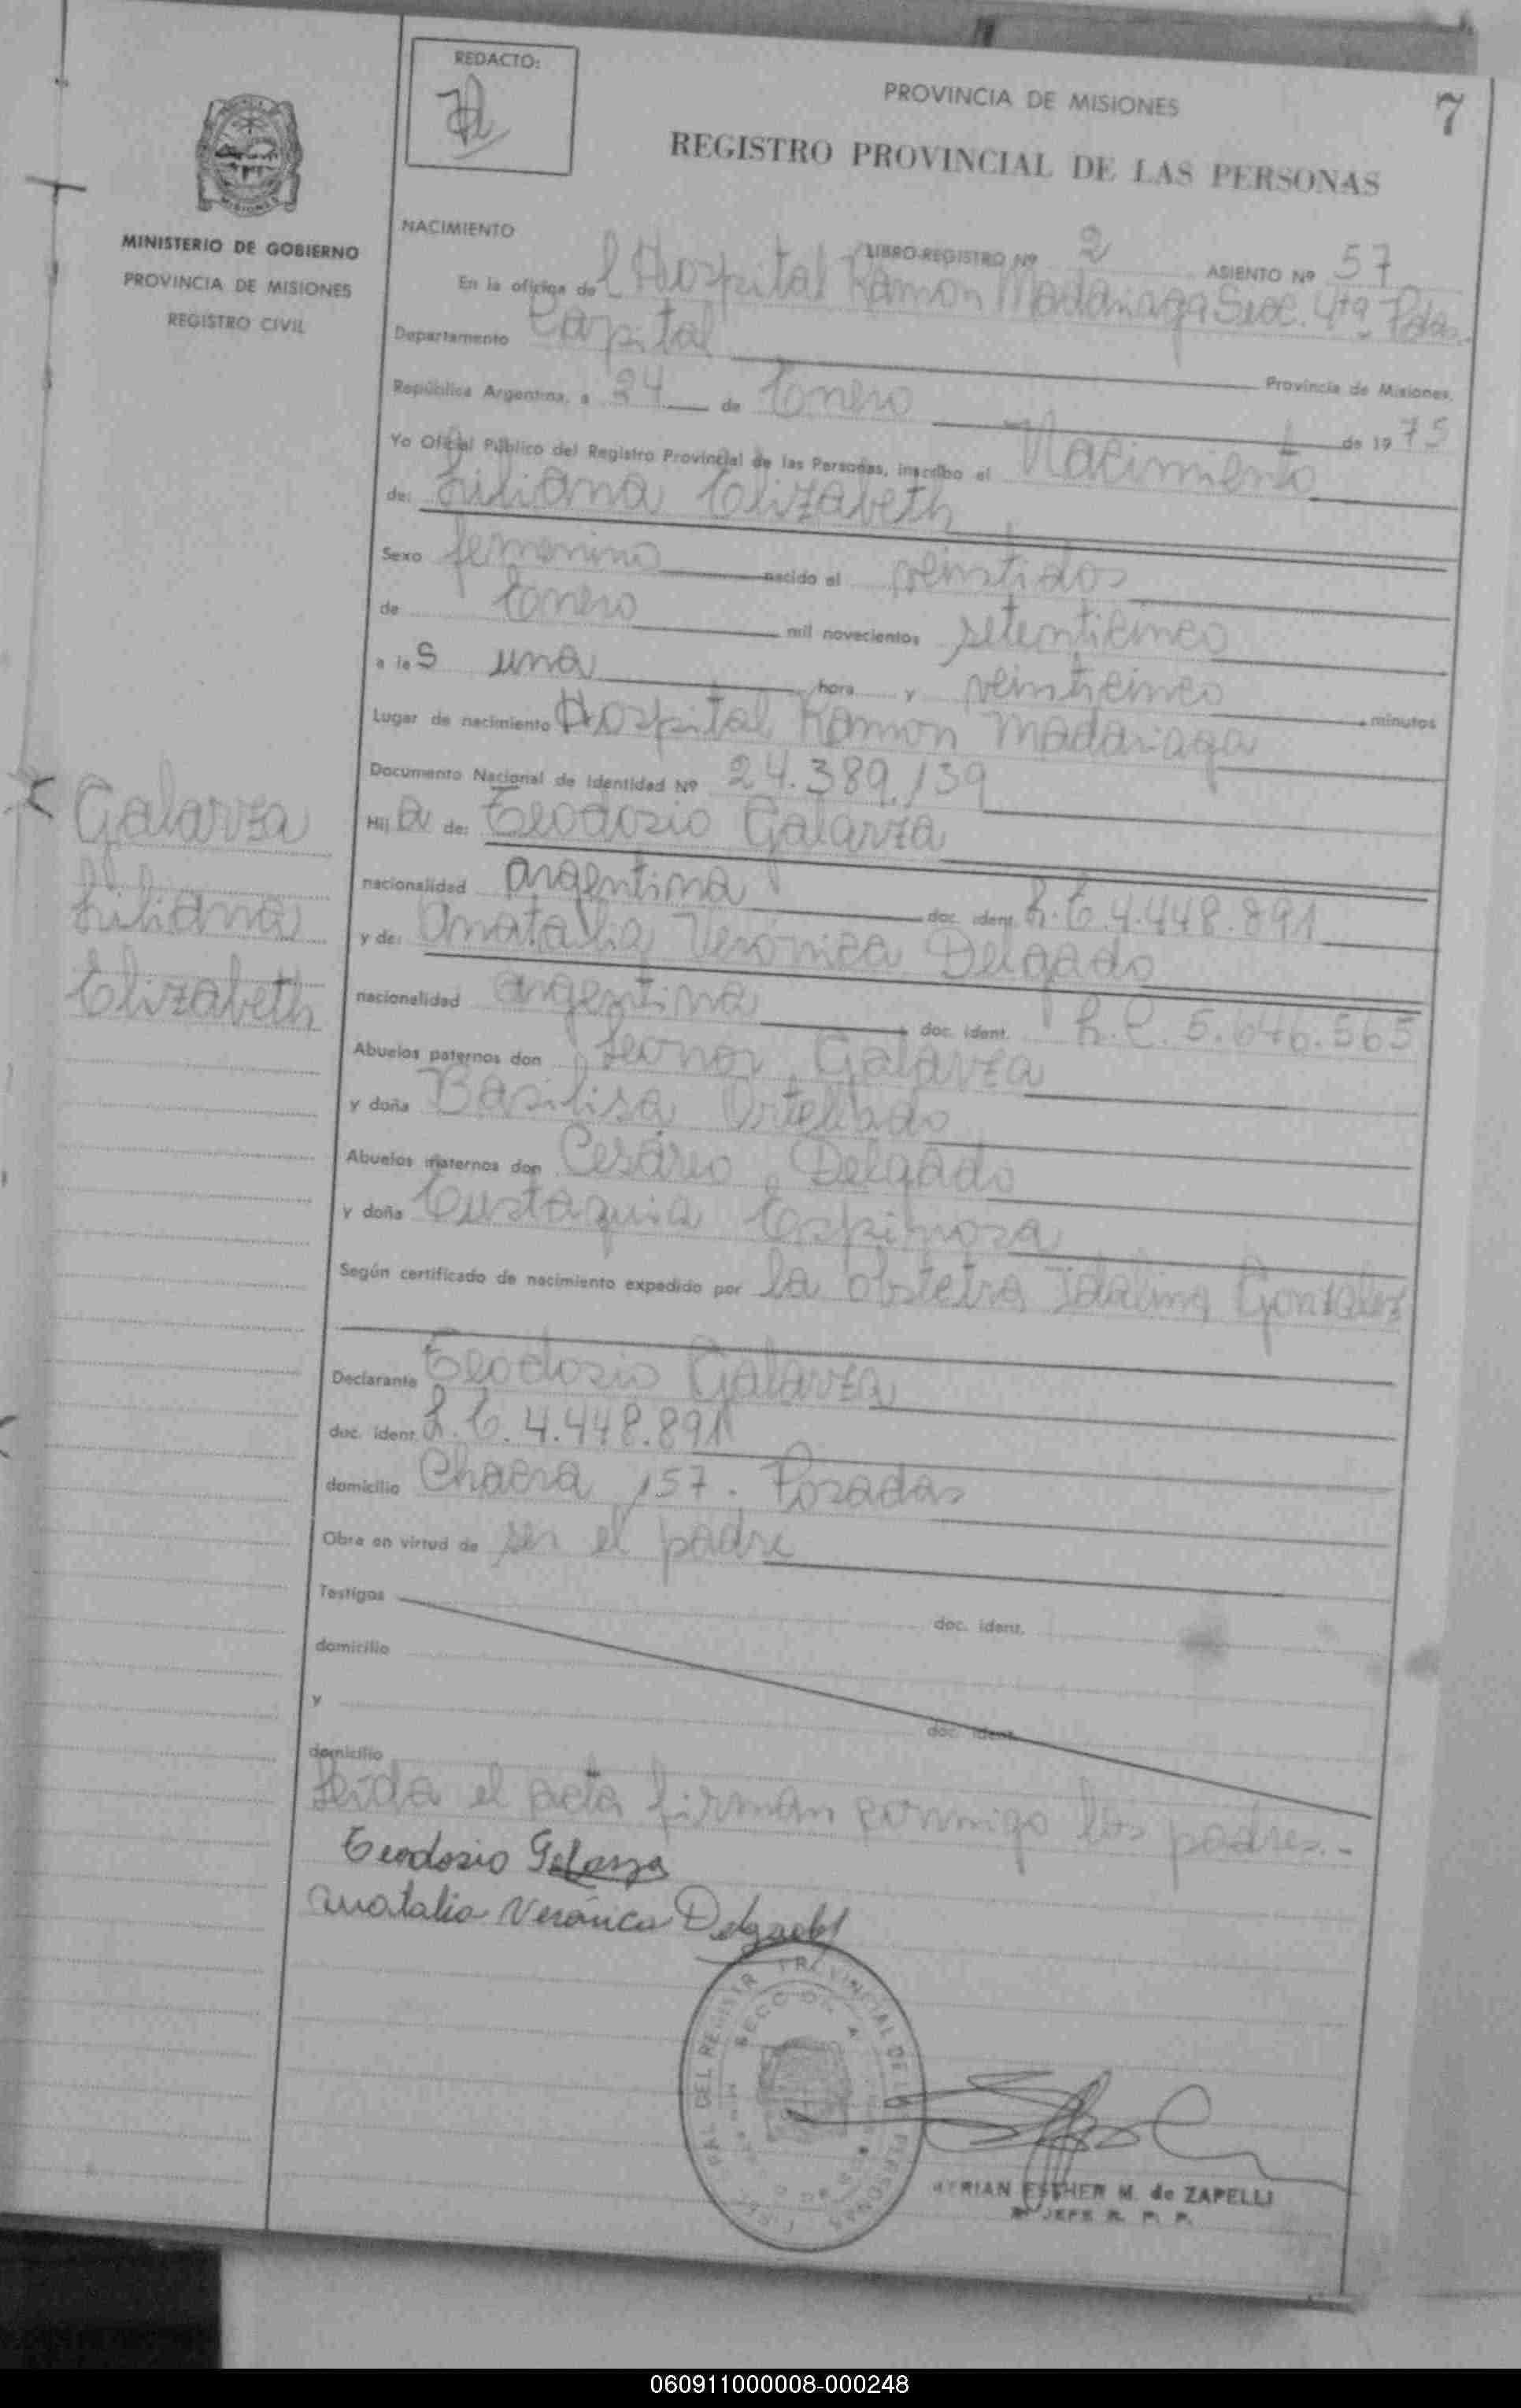 REDACTO:
PROVINCIA DE MISIONES
7
REGISTRO PROVINCIAL DE LAS PERSONAS
MISIONES
MINISTERIO DE GOBIERNO
PROVINCIA DE MISIONES
REGISTRO CIVIL
NACIMIENTO
LIBRO-REGISTRO Nº 2 ASIENTO Nº 57
En la oficina del Hospital Ramon Madariaga Secc. 4ta Pdas.
Departamento Capital Provincia de Misiones,
República Argentina, a 24 de Enero de 1975
Yo Oficial Público del Registro Provincial de las Personas, inscribo el Nacimiento
de: Liliana Elizabeth
Sexo femenino nacido el veintidos
de Enero mil novecientos setenticinco
a las una hora y veinticinco minutos
Lugar de nacimiento Hospital Ramon Madariaga
Documento Nacional de Identidad Nº 24.389.139
Hija de: Teodosio Galarza
nacionalidad argentina doc. ident. L.E 4.448.891
y de: Anatalia Verónica Delgado
nacionalidad argentina doc. ident. L.C. 5.646.565
Abuelos paternos don Leonor Galarza
y doña Basilisa Ortellado
Abuelos maternos don Cesáreo Delgado
y doña Eustaquia Espinosa
Según certificado de nacimiento expedido por la obstetra Idalina Gonzalez
Declarante Teodosio Galarza
doc. ident. L.E. 4.448.891
domicilio Chacra 157. Posadas
Obra en virtud de ser el padre
Testigos doc. ident.
domicilio
y doc. ident.
domicilio
Leída el acta firman conmigo los padres.-
Teodosio Galarza
Anatalia Verónica Delgado
Galarza
Liliana
Elizabeth
ESTHER M. de ZAPELLI
JEFE R. P. P.
060911000008-000248